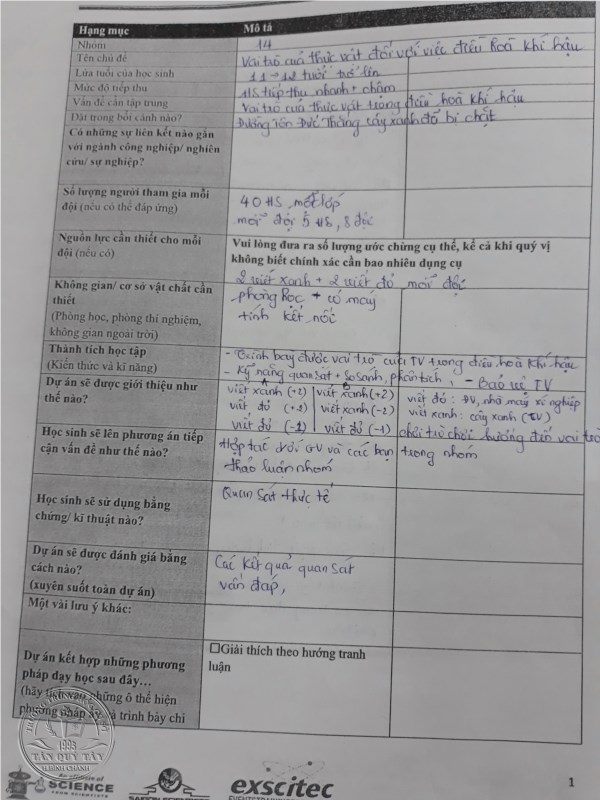 Hạng mục Mô tả
Nhóm 14
Tên chủ đề Vai trò của thực vật đối với việc điều hoà khí hậu
Lứa tuổi của học sinh 11 → 12 tuổi trở lên
Mức độ tiếp thu HS tiếp thu nhanh + chậm
Vấn đề cần tập trung Vai trò của thực vật trong điều hoà khí hậu
Đặt trong bối cảnh nào? Đường Tôn Đức Thắng cây xanh đã bị chặt
Có những sự liên kết nào gắn
với ngành công nghiệp/ nghiên
cứu/ sự nghiệp?
Số lượng người tham gia mỗi
đội (nếu có thể đáp ứng)
40 HS một lớp
mỗi đội 5 HS, 8 đội
Nguồn lực cần thiết cho mỗi
đội (nếu có)
Vui lòng đưa ra số lượng ước chừng cụ thể, kể cả khi quý vị
không biết chính xác cần bao nhiêu dụng cụ
2 viết xanh + 2 viết đỏ mỗi đội
Không gian/ cơ sở vật chất cần
thiết
(Phòng học, phòng thí nghiệm,
không gian ngoài trời)
phòng học + có máy
tính kết nối
Thành tích học tập
(Kiến thức và kĩ năng)
- Trình bày được vai trò của TV trong điều hoà khí hậu
- Kỹ năng quan sát + so sánh, phân tích, - Bảo vệ TV
Dự án sẽ được giới thiệu như
thế nào?
A B
viết xanh (+2) viết xanh (+2) viết đỏ: ĐV, nhà máy xí nghiệp
viết đỏ viết xanh (-2) viết xanh: cây xanh (TV)
viết đỏ viết đỏ (-1) chơi trò chơi hướng đến vai trò
Học sinh sẽ lên phương án tiếp
cận vấn đề như thế nào?
Hợp tác với GV và các bạn trong nhóm
thảo luận nhóm
Học sinh sẽ sử dụng bằng
chứng/ kĩ thuật nào?
Quan sát thực tế
Dự án sẽ được đánh giá bằng
cách nào?
(xuyên suốt toàn dự án)
Các kết quả quan sát
vấn đáp,
Một vài lưu ý khác:
Dự án kết hợp những phương
pháp dạy học sau đây…
(hãy tick vào những ô thể hiện
phương pháp trình bày chi
☐Giải thích theo hướng tranh
luận
1993
TÂN QUÝ TÂY
H.BÌNH CHÁNH
SCIENCE
FROM SCIENTISTS
exscitec
1